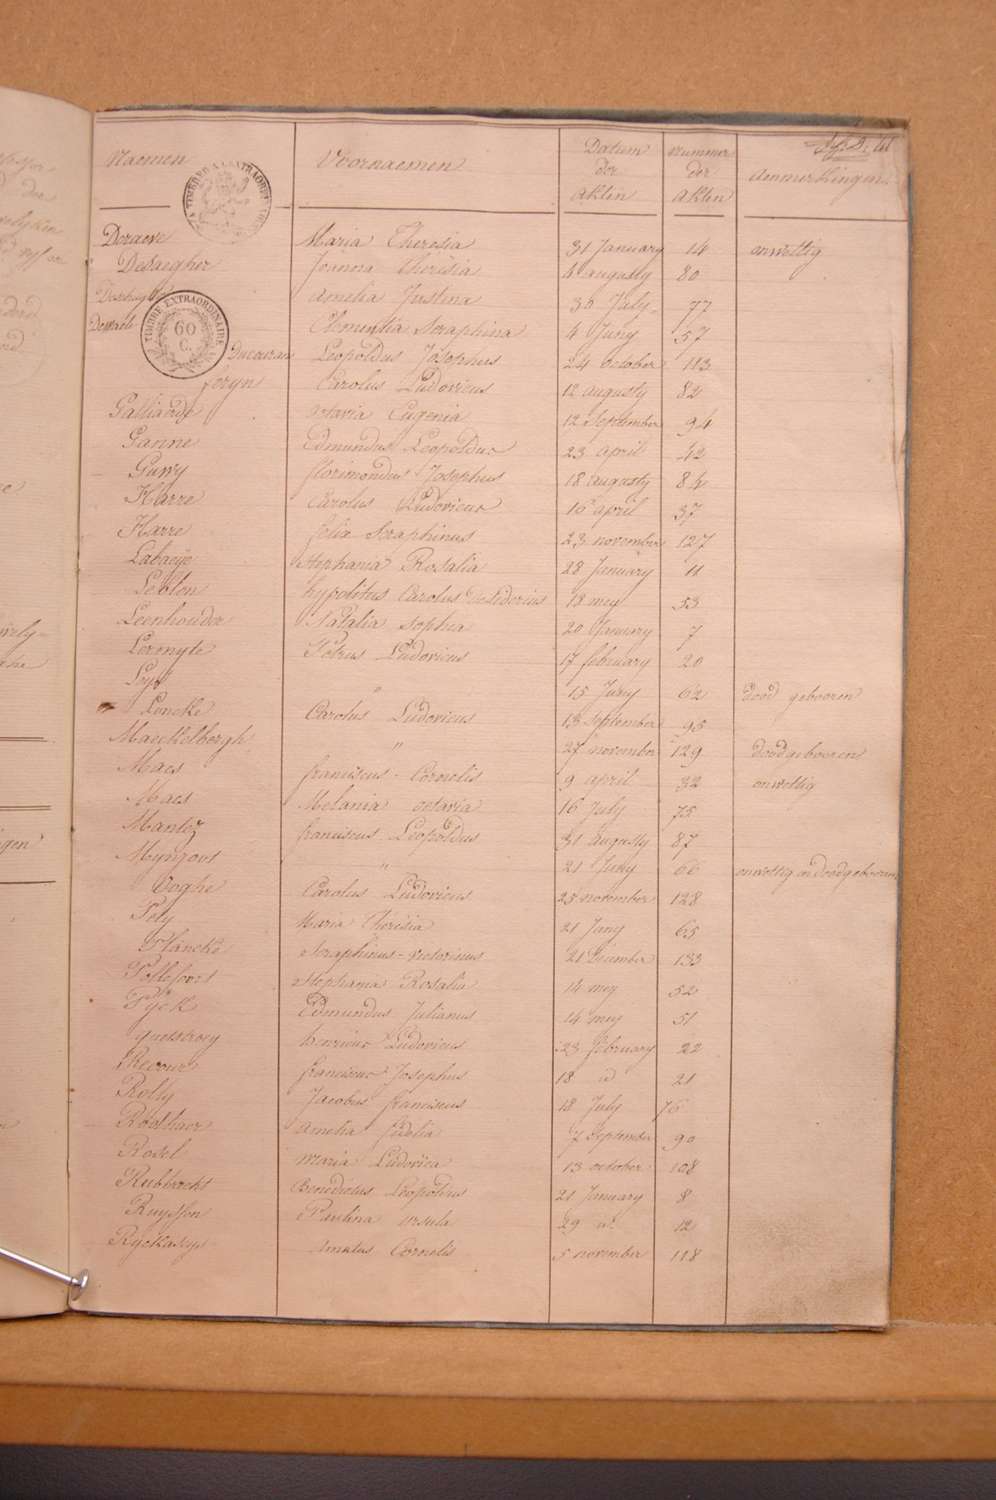 Naemen Voornaemen Datum der Akten Nummer der Akten Aenmerkingen
TIMBRE EXTRAORDINAIRE
TIMBRE EXTRAORDINAIRE
60
C.
Deraeve Maria Theresia 31 January 14 onwettig
Desaegher Joanna Theresia 4 augusty 80
Amelia Justina 30 July 77
Dewaele Clementia Seraphina 4 Juny 57
Ducourant Leopoldus Josephus 24 october 113
feryn Carolus Ludovicus 12 augusty 82
Galliaerde octavia Eugenia 12 September 94
Ganne Edmundus Leopoldus 23 april 42
Guwy florimondus Josephus 18 augusty 84
Harre Carolus Ludovicus 16 april 37
Harre felix Seraphinus 23 november 127
Labaeye Stephania Rosalia 28 January 11
Leblon hypolitus Carolus Desiderius 18 mey 53
Leenhouder Natalia Sophia 20 January 7
Lerenyte Petrus Ludovicus 17 february 20
Leys " 15 Juny 62 dood gebooren
Loncke Carolus Ludovicus 13 September 95
Maeckelbergh " 27 november 129 doodgebooren
Maes franciscus Cornelis 9 april 32 onwettig
Maes Melania octavia 16 July 75
Mantez franciscus Leopoldus 31 augusty 87
" 21 Juny 66 onwettig en doodgebooren
Ooghe Carolus Ludovicus 25 november 128
Pely Maria Theresia 21 Juny 65
Plancke Seraphinus victorinus 21 December 133
Stephania Rosalia 14 mey 52
Pyck Edmundus Julianus 14 mey 51
henricus Ludovicus 23 february 22
Recour franciscus Josephus 18 id 21
Rolly Jacobus franciscus 18 July 76
Amelia fidelia 7 September 90
Rosel maria Ludovica 13 october 108
Rubbrecht Benedictus Leopoldus 21 January 8
Ruysson Paulina ursula 29 id 12
Amatus Cornelis 5 november 118